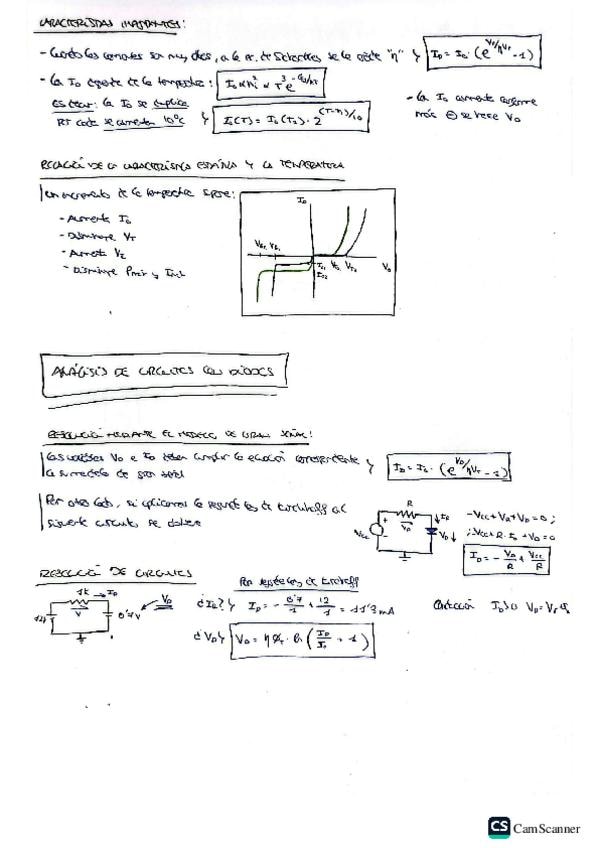 CARACTERÍSTICAS IMPORTANTES:
- Cuando las corrientes son muy altas, a la ec. de Schockley se le añade "η" y I_D = I_0 · (e^(V_D/ηV_T) - 1)
- La I_0 depende de la temperatura: I_0 ∝ n_i² ∝ T³ e^(-E_G/kT)
- La I_0 aumenta conforme
más ⊖ se hace V_D
es decir: la I_0 se duplica
por cada aumento 10°C y I_0(T) = I_0(T_0) · 2^((T-T_0)/10)
RELACIÓN DE LA CARACTERÍSTICA ESTÁTICA Y LA TEMPERATURA
Un incremento de la temperatura supone:
- Aumenta I_0
- Disminuye V_T
- Aumenta V_Z
- Disminuye Pmáx y Imáx
I_D
V_Z1 V_Z2
I_01 V_T1 V_T2 V_D
I_02
ANÁLISIS DE CIRCUITOS CON DIODOS
RESOLUCIÓN MEDIANTE EL MODELO DE GRAN SEÑAL:
Los valores V_D e I_D deben cumplir la ecuación correspondiente
a su modelo de gran señal y I_D = I_0 · (e^(V_D/ηV_T) - 1)
Por otro lado, si aplicamos la segunda ley de Kirchhoff al
siguiente circuito se obtiene
R
V_R
I_D
V_CC
V_D
-V_CC + V_R + V_D = 0;
-V_CC + R · I_D + V_D = 0
I_D = - V_D/R + V_CC/R
RESOLUCIÓN DE CIRCUITOS
1k → I_D
V
12V
0'7V
V_D
Por segunda ley de Kirchhoff
¿I_D? I_D = - 0'7/1 + 12/1 = 11'3 mA
Condición I_D>0
¿V_D? V_D = η · ln (I_D/I_0 + 1)
CS CamScanner